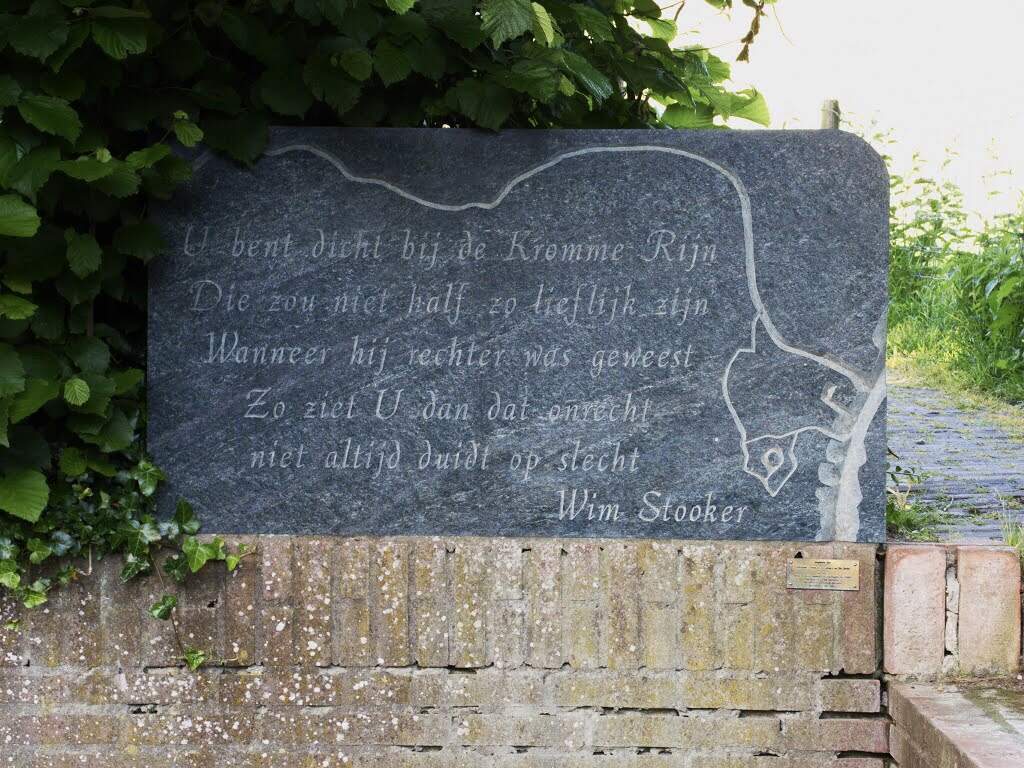 U bent dicht bij de Kromme Rijn
Die zou niet half zo lieflijk zijn
Wanneer hij rechter was geweest
Zo ziet U dan dat onrecht
niet altijd duidt op slecht
Wim Stooker